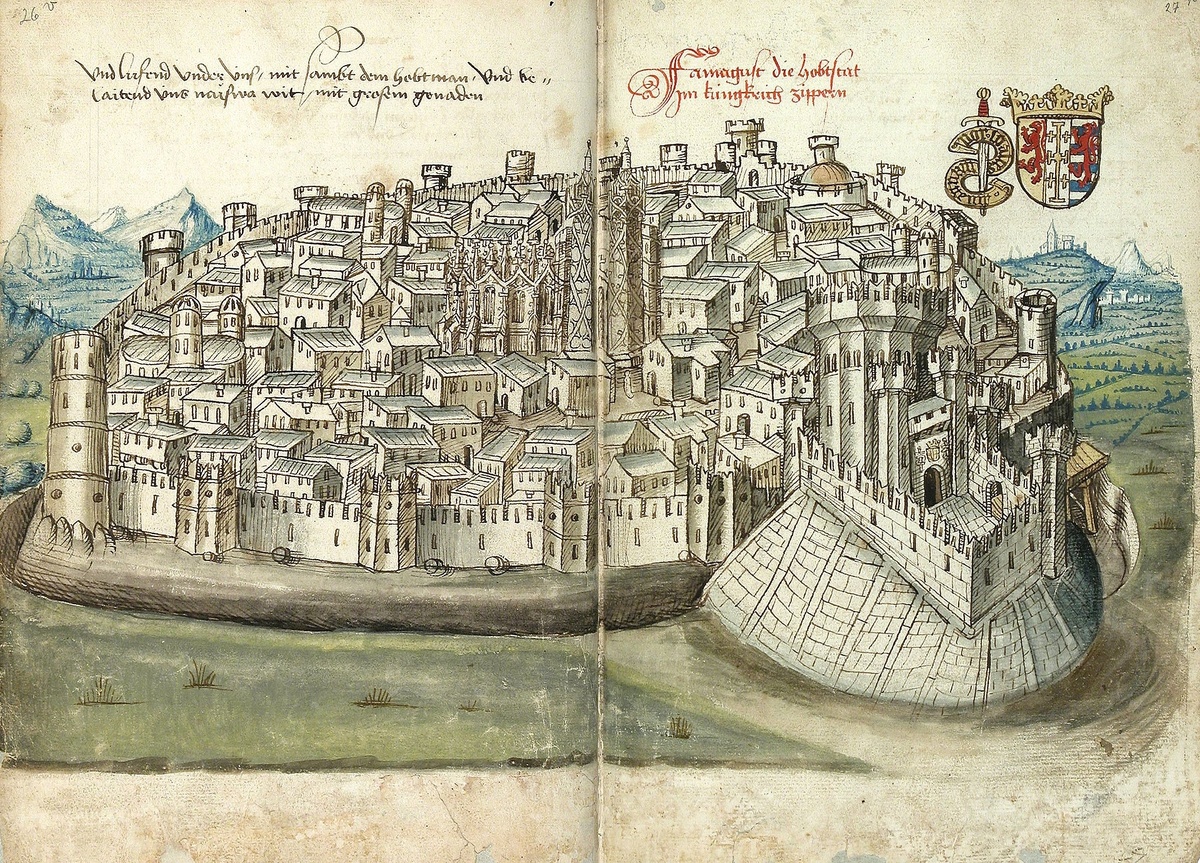 26 v
Vnd lüfend vnder vns, mit sambt dem hobtman, vnd be„
laitend vns naiswa wit, mit grosim genaden
Famagust die hobtstat
Im küngkrich zippern
27